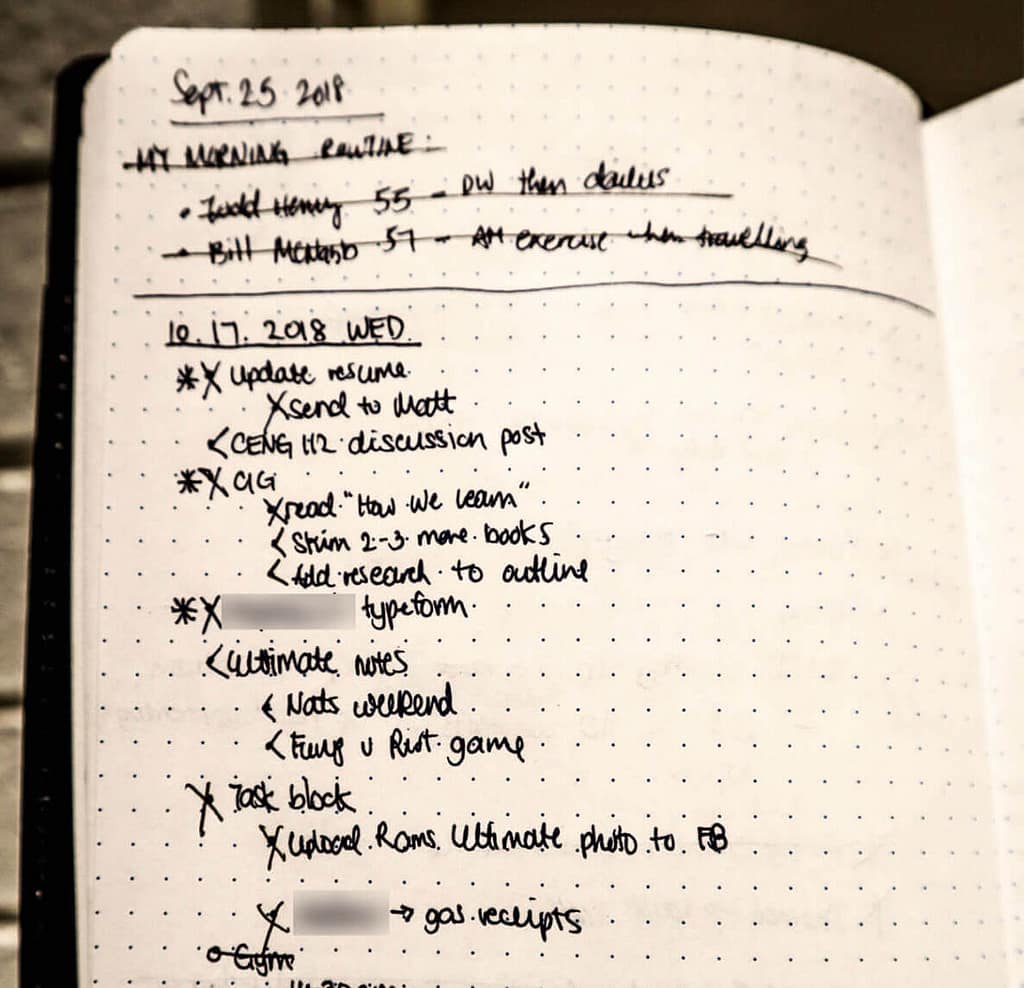 Sept. 25 2018
MY MORNING ROUTINE:
• Todd Henry 55 - DW then dailies
- Bill McNabb 57 - AM exercise when travelling
10.17.2018 WED.
*X update resume
X send to Matt
< CENG 112 discussion post
*X GIG
X read "How We Learn"
< Skim 2-3 more books
< Add research to outline
*X typeform
< Ultimate notes
< Nats weekend
< Fury v Riot game
X Task block
X upload Rams Ultimate photo to FB
X → gas receipts
o Gym